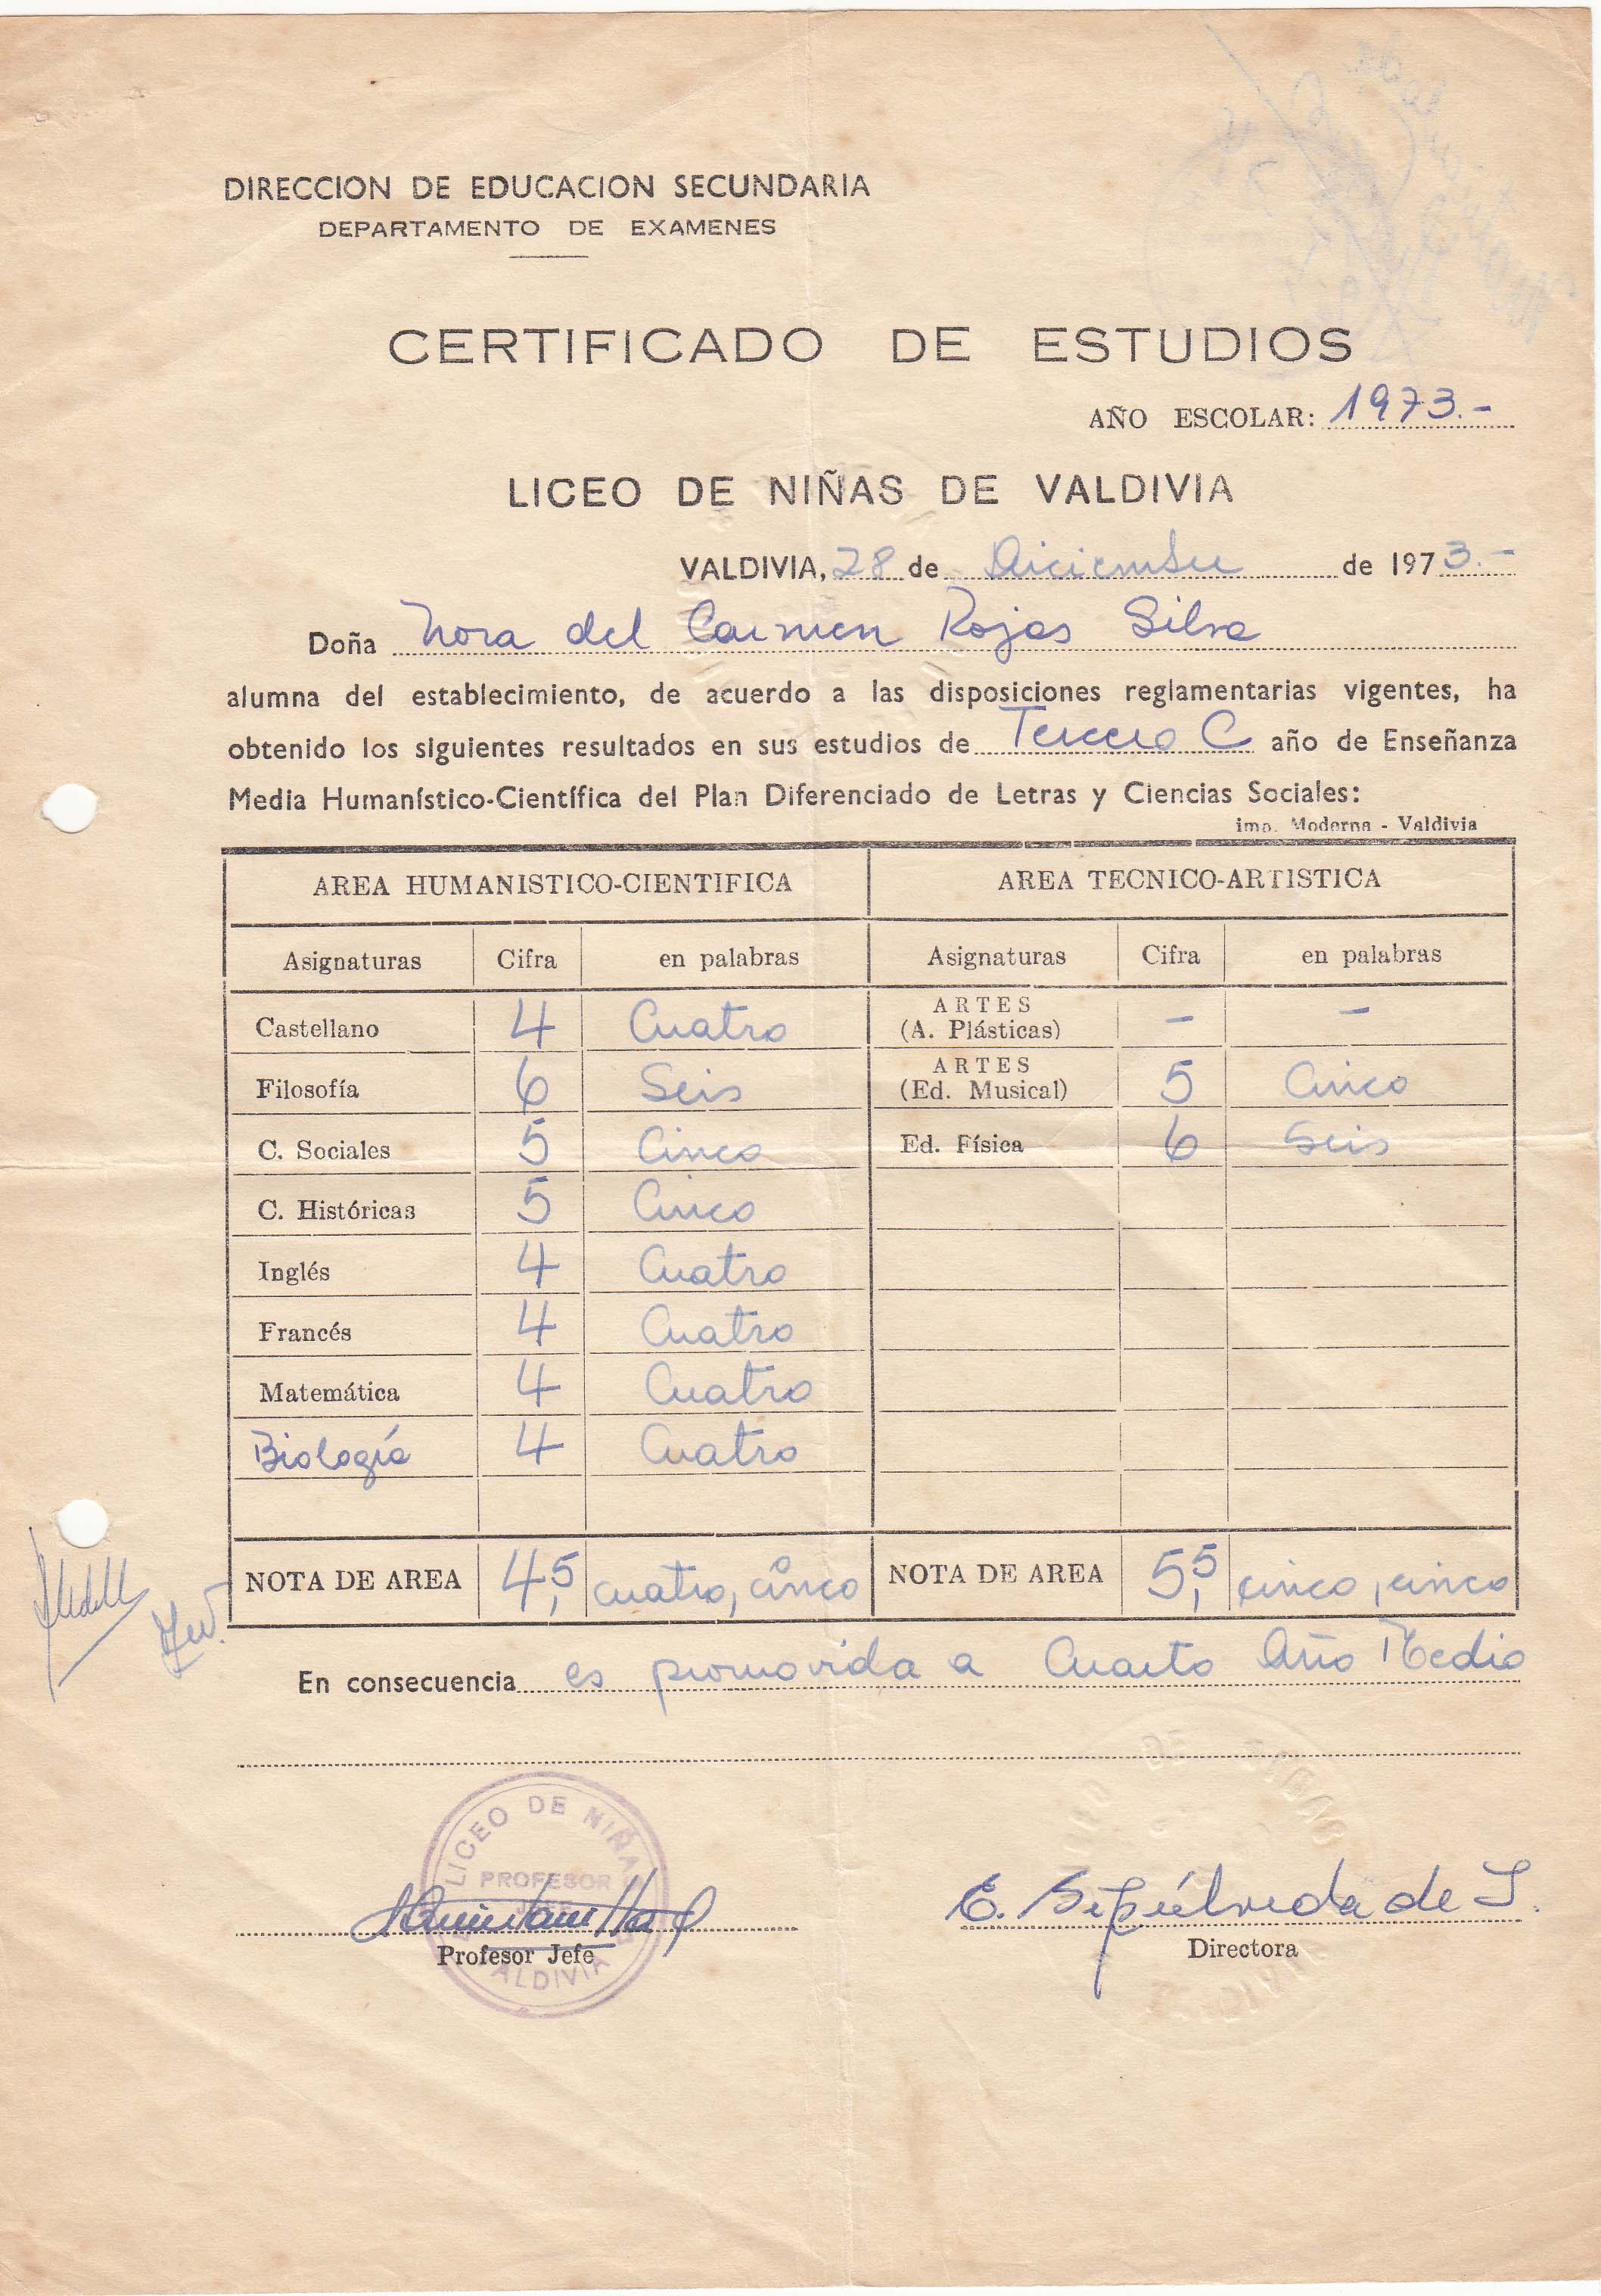 DIRECCION DE EDUCACION SECUNDARIA
DEPARTAMENTO DE EXAMENES
CERTIFICADO DE ESTUDIOS
AÑO ESCOLAR: 1973.-
LICEO DE NIÑAS DE VALDIVIA
VALDIVIA, 28 de Diciembre de 1973.-
Doña Nora del Carmen Rojas Silva
alumna del establecimiento, de acuerdo a las disposiciones reglamentarias vigentes, ha
obtenido los siguientes resultados en sus estudios de Tercero C año de Enseñanza
Media Humanístico-Científica del Plan Diferenciado de Letras y Ciencias Sociales:
imp. Moderna - Valdivia
AREA HUMANISTICO-CIENTIFICA AREA TECNICO-ARTISTICA
Asignaturas Cifra en palabras Asignaturas Cifra en palabras
Castellano 4 Cuatro ARTES (A. Plásticas) - -
Filosofía 6 Seis ARTES (Ed. Musical) 5 Cinco
C. Sociales 5 Cinco Ed. Física 6 Seis
C. Históricas 5 Cinco
Inglés 4 Cuatro
Francés 4 Cuatro
Matemática 4 Cuatro
Biología 4 Cuatro
NOTA DE AREA 4,5 cuatro, cinco NOTA DE AREA 5,5 cinco, cinco
En consecuencia es promovida a Cuarto Año Medio
LICEO DE NIÑAS
PROFESOR
JEFE
VALDIVIA
E. Sepúlveda de S.
Profesor Jefe
Directora